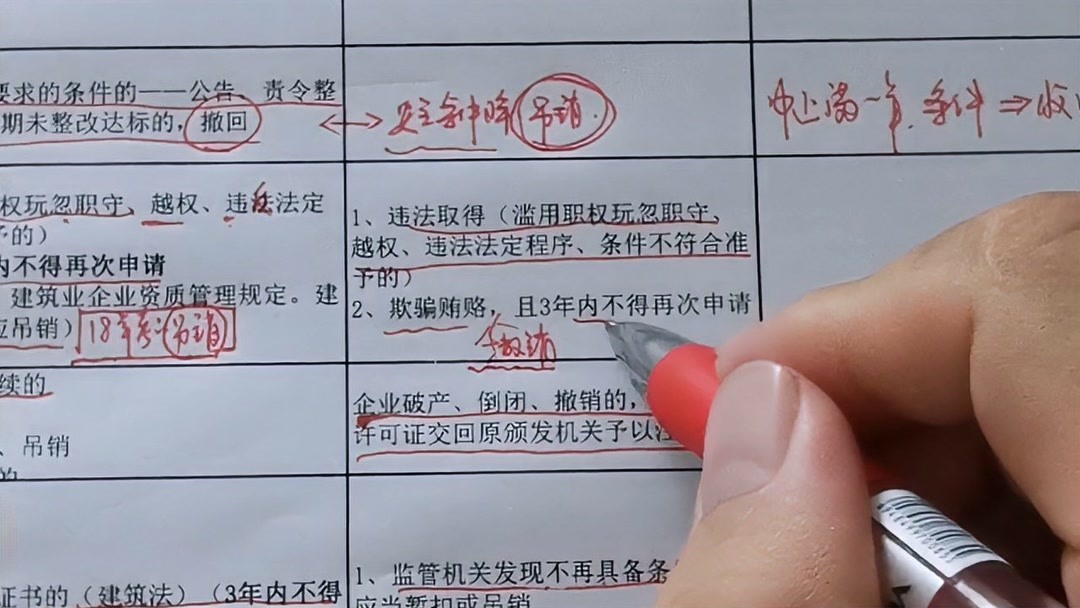 要求的条件的——公告、责令整
期未整改达标的，撤回
吊销
中止满一年，条件⇒收
权玩忽职守、越权、违法法定
予的）
内不得再次申请
建筑业企业资质管理规定。建
应吊销）
18年考：吊销
1、违法取得（滥用职权玩忽职守、
越权、违法法定程序、条件不符合准
予的）
2、欺骗贿赂，且3年内不得再次申请
撤销
续的
、吊销
的
企业破产、倒闭、撤销的，
许可证交回原颁发机关予以注
证书的（建筑法）（3年内不得
1、监管机关发现不再具备条
应当暂扣或吊销